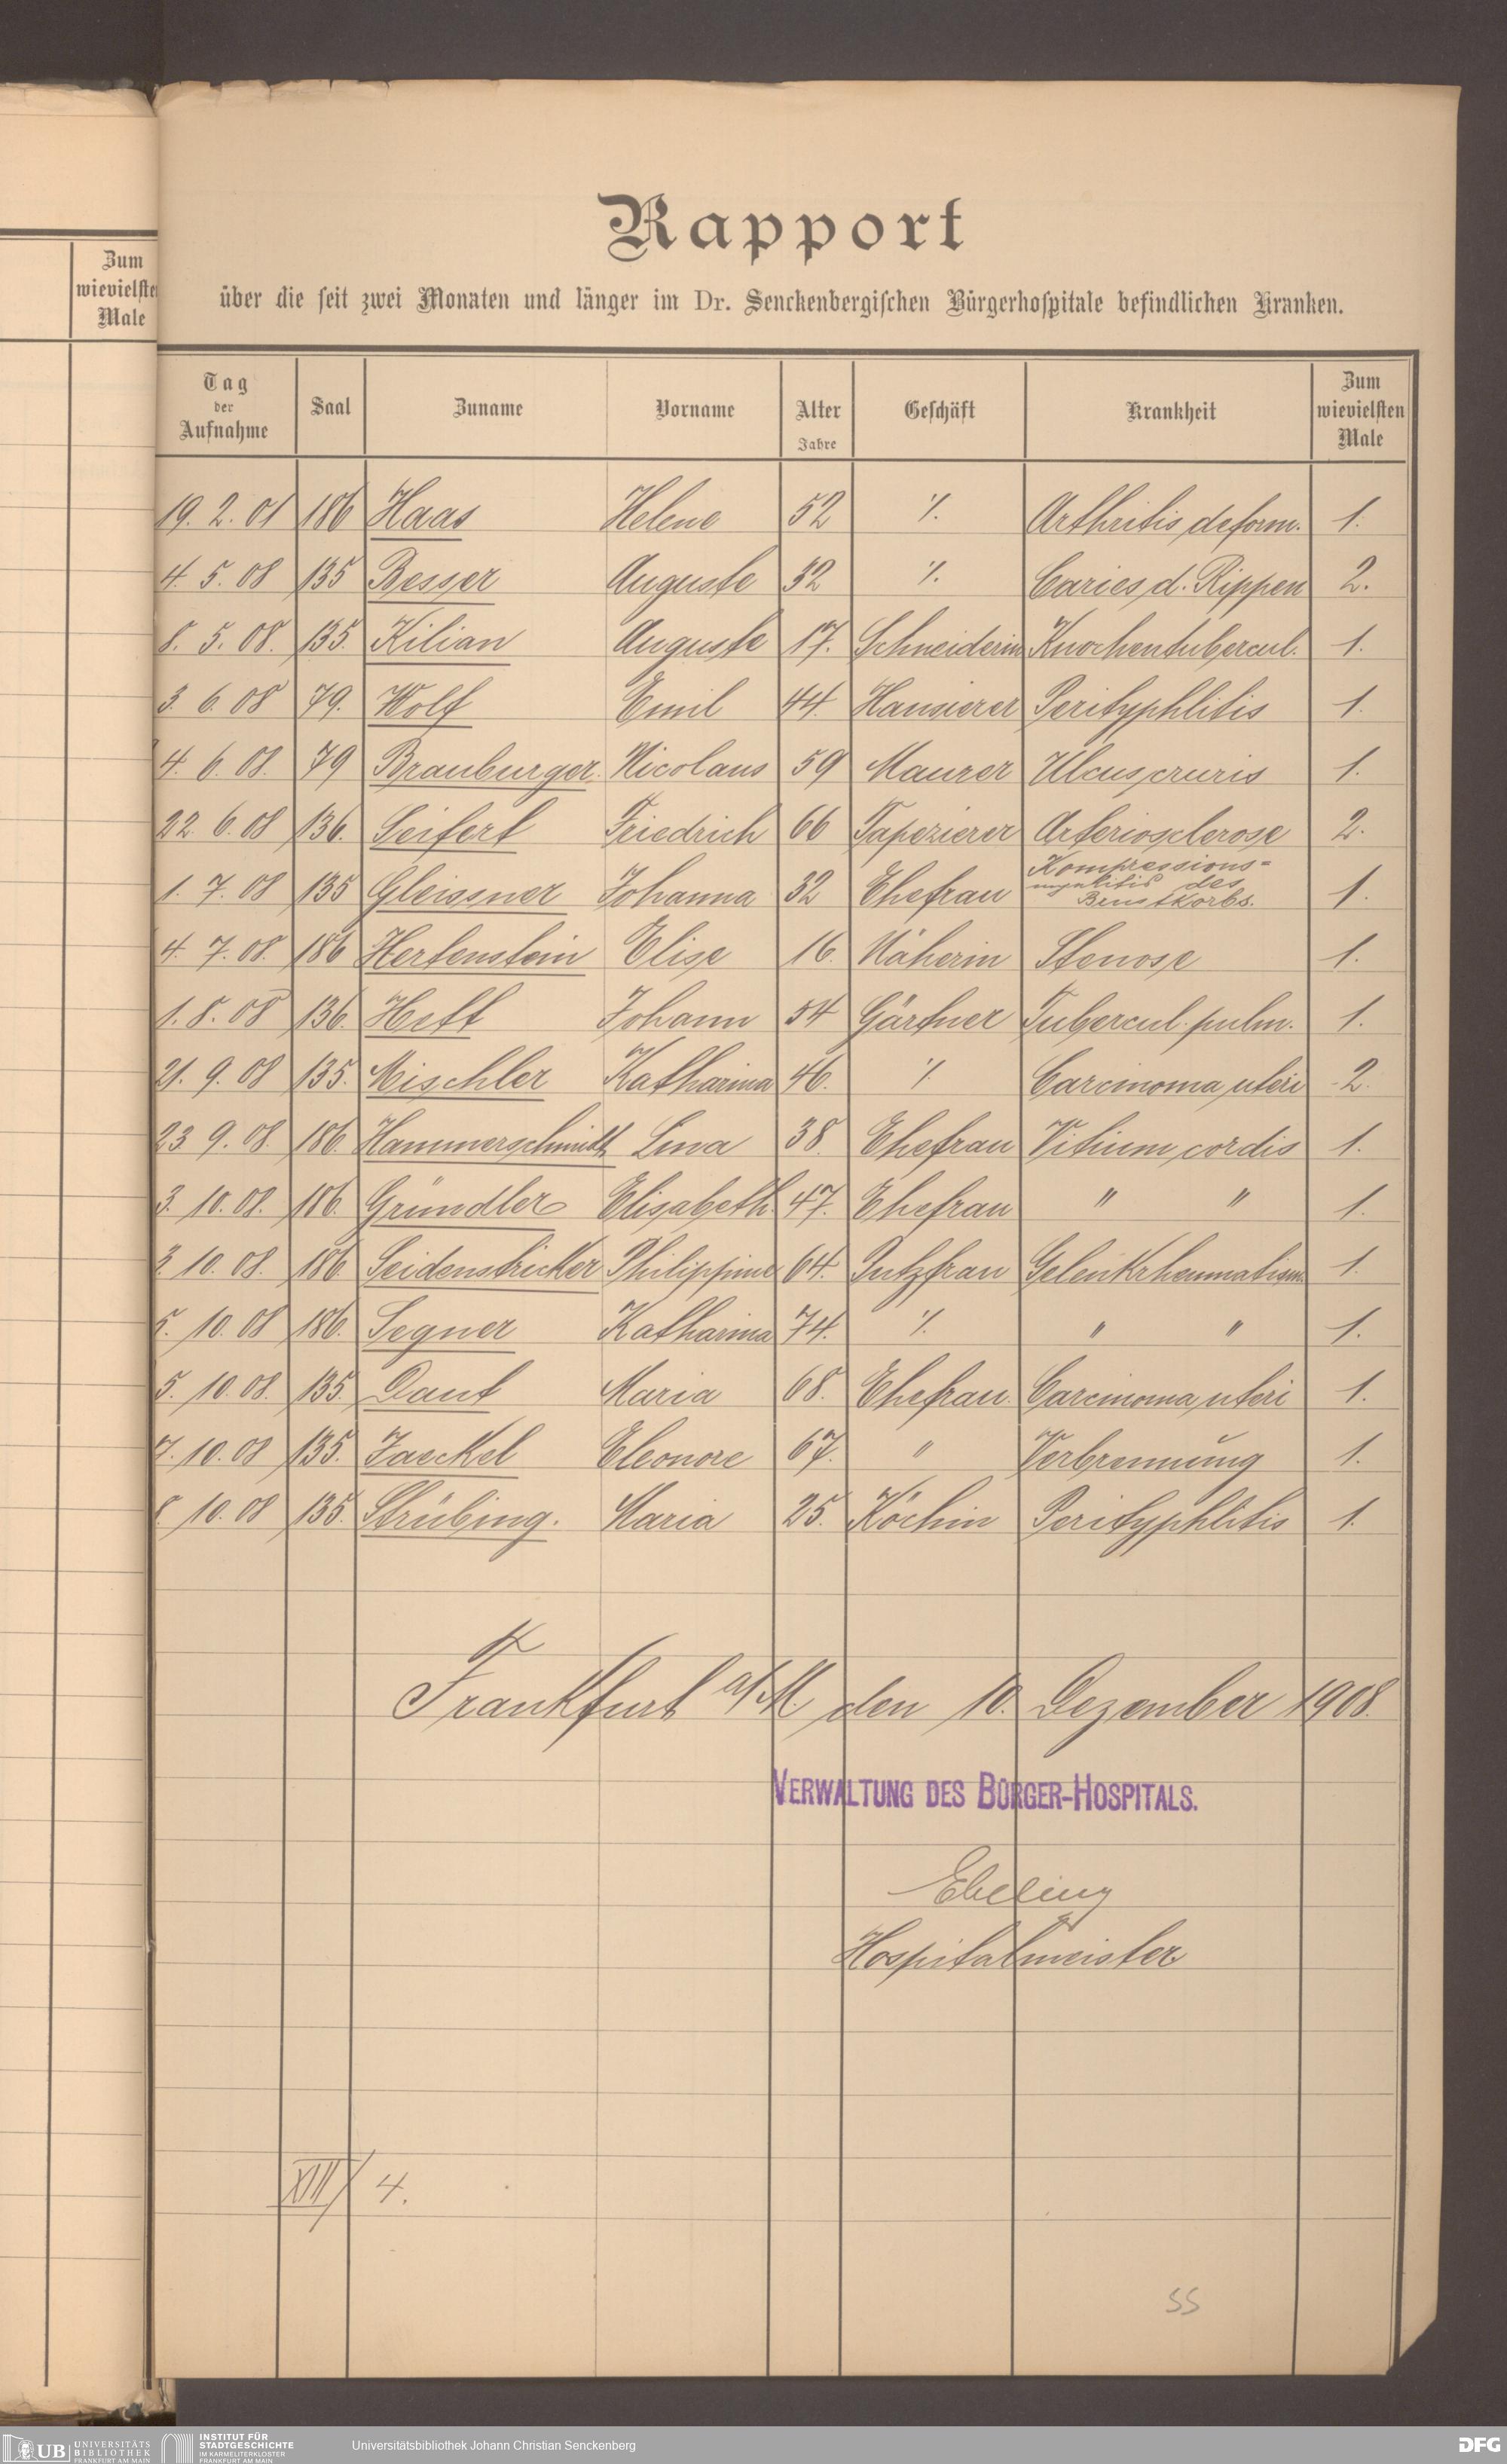 Zum
wievielsten
Male
Rapport
über die seit zwei Monaten und länger im Dr. Senckenbergischen Bürgerhospitale befindlichen Kranken.
Tag der Aufnahme Saal Zuname Vorname Alter Jahre Geschäft Krankheit Zum wievielsten Male
19. 2. 01 186 Haas Helene 52 ٪. Arthritis deform. 1.
4. 5. 08 135 Besser Auguste 32 ٪. Caries d. Rippen 2.
8. 5. 08. 135. Kilian Auguste 17. Schneiderin Knochentubercul. 1.
3. 6. 08 79. Wolf Emil 44. Hausierer Perityphlitis 1.
4. 6. 08. 79 Brauburger Nicolaus 59 Maurer Ulcus cruris 1.
22. 6. 08 136. Seifert Friedrich 66 Tapezierer Arteriosclerose 2.
1. 7. 08 135 Gleissner Johanna 32 Ehefrau Kompressions= myelitis des Brustkorbs. 1.
4. 7. 08. 186 Hertenstein Elise 16. Näherin Stenose 1.
1. 8. 08 136. Hett Johann 54 Gärtner Tubercul. pulm. 1.
21. 9. 08 135. Mischler Katharina 46. ٪ Carcinoma uteri 2.
23 9. 08. 186. Hammerschmidt Lina 38. Ehefrau Vitium cordis 1.
3. 10. 08. 186. Gründler Elisabeth. 47. Ehefrau " " 1.
3. 10. 08. 186 Seidenstricker Philippine 64. Putzfrau Gelenkrheumatism. 1.
5. 10. 08 186. Segner Katharina 74. ٪. " " 1.
5. 10. 08. 135. Daut Maria 68. Ehefrau. Carcinoma uteri 1.
7. 10. 08 135. Jaeckel Eleonore 67. " Verbrennung 1.
8. 10. 08 135. Strübing. Maria 25. Köchin Perityphlitis 1.
Frankfurt a/M. den 10. Dezember 1908.
VERWALTUNG DES BÜRGER-HOSPITALS.
Ebeling
Hospitalmeister
XIII/4.
55
UB UNIVERSITÄTS
BIBLIOTHEK
FRANKFURT AM MAIN
INSTITUT FÜR
STADTGESCHICHTE
IM KARMELITERKLOSTER
FRANKFURT AM MAIN
Universitätsbibliothek Johann Christian Senckenberg
DFG